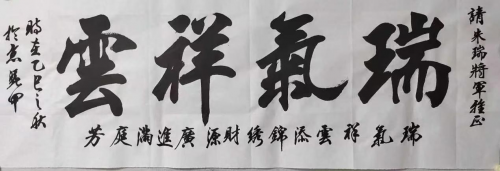 請朱瑞將軍雅正
瑞氣祥雲
瑞氣祥雲添錦綉財源廣進滿庭芳
時在乙巳之秋
於京興甲